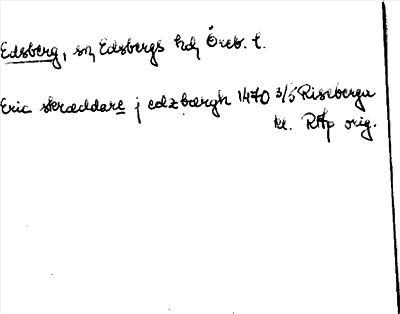 Edsberg, sn, Edsbergs hd, Öreb. l.
Eric skræddare j edzbærgh 1470 3/5 Riseberga
kl. RAp orig.